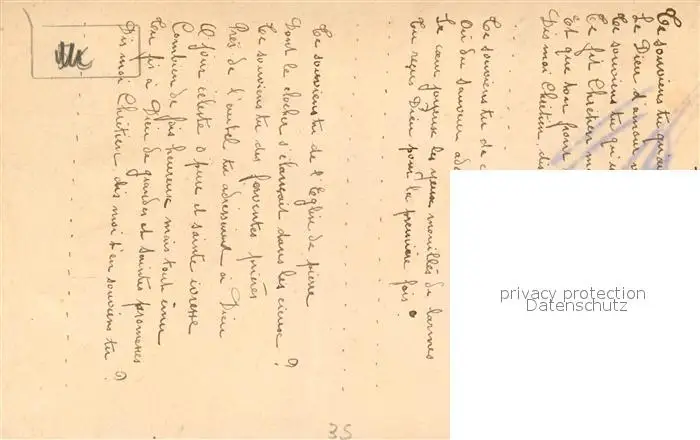 Te souviens tu qu'au
Le Dieu d'amour
Te souviens tu qu'
Te fit Chrétien
Et que ton front
Dis moi Chrétien, dis
Te souviens tu de
Où du Sauveur
Le cœur joyeux les yeux mouillés de larmes
Tu reçus Dieu pour la première fois
Te souviens tu de l'Eglise de pierre
Dont le clocher s'élançait dans les cieux ?
Te souviens tu des ferventes prières
Près de l'autel tu adressais à Dieu
O jour céleste o pure et sainte ivresse
Combien de fois heureux mais tout ému
Tu fis à Dieu de grandes et saintes promesses
Dis moi Chrétien dis moi t'en souviens tu ?
35
privacy protection
Datenschutz